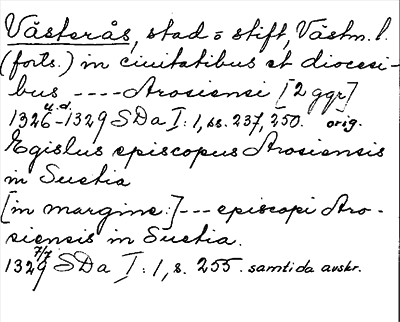 Västerås, stad = stift, Västm. l.
(forts.) in ciuitatibus et diocesi-
bus ---- Arosiensi [2 ggr]
u.d.
1326-1329 SDa I: 1, ss. 237, 250. orig.
Egislus episcopus Arosiensis
in Suetia
[in margine:] --- episcopi Aro-
siensis in Suetia.
7/7
1329 SDa I: 1, s. 255. samtida avskr.